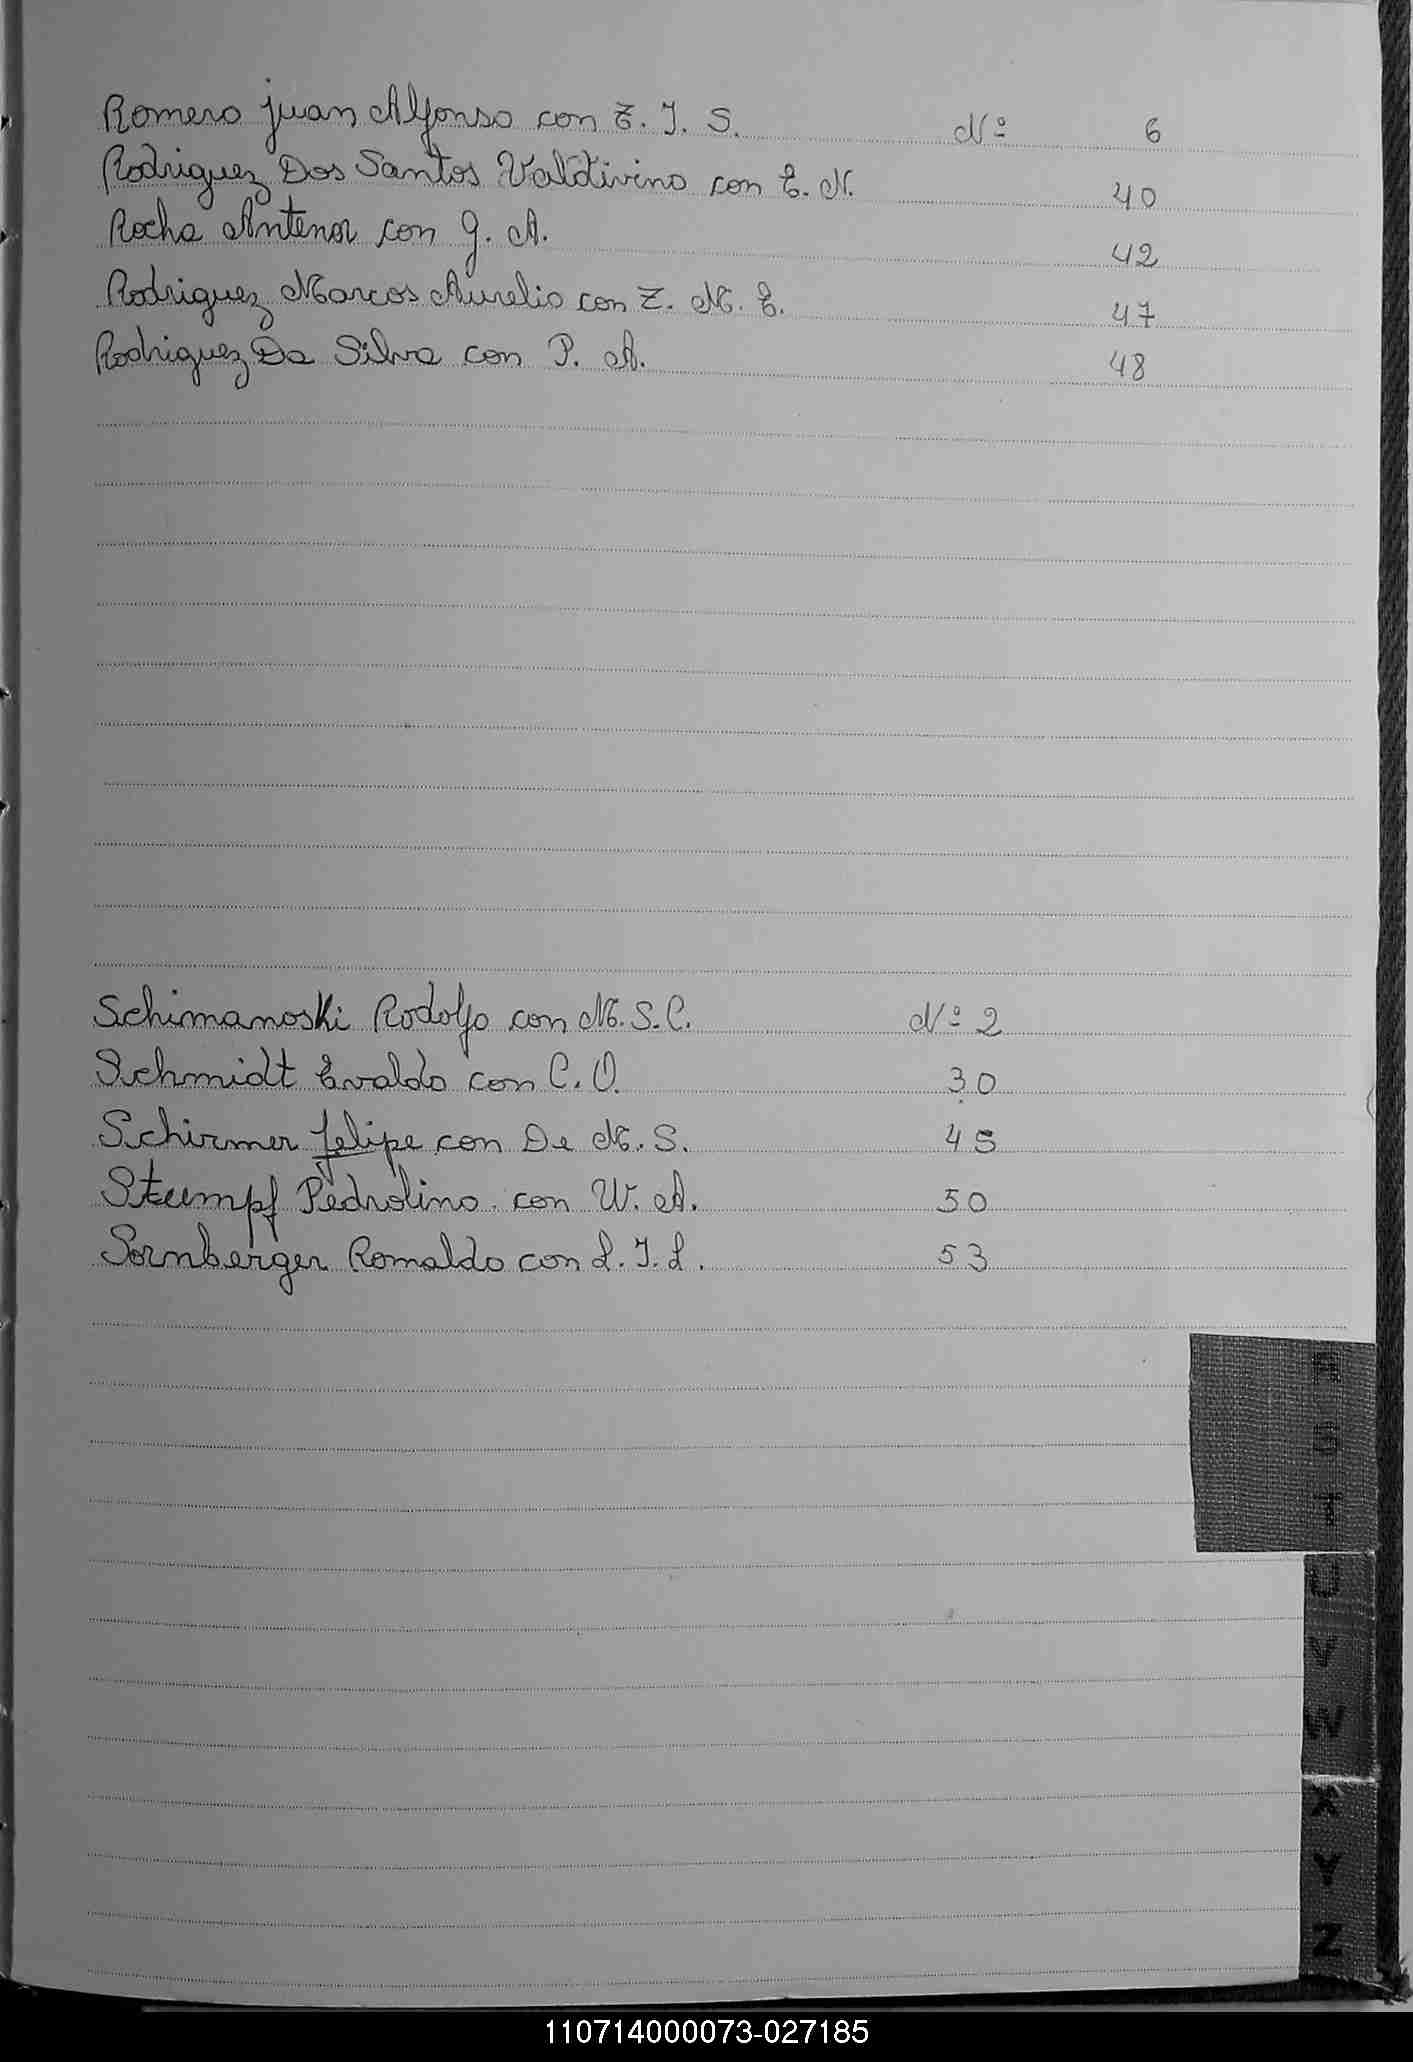 Romero Juan Alfonso con Z. J. S. Nº 6
Rodriguez Dos Santos Valdivino con E. N. 40
Rocha Antenor con G. A. 42
Rodriguez Marcos Aurelio con Z. M. E. 47
Rodriguez Da Silva con P. A. 48
Schimanoski Rodolfo con M. S. C. Nº 2
Schmidt Evaldo con C. O. 30
Schirmer felipe con De M. S. 45
Stumpf Pedrolino con W. A. 50
Sornberger Romaldo con L. J. L. 53
R
S
T
U
V
W
X
Y
Z
110714000073-027185